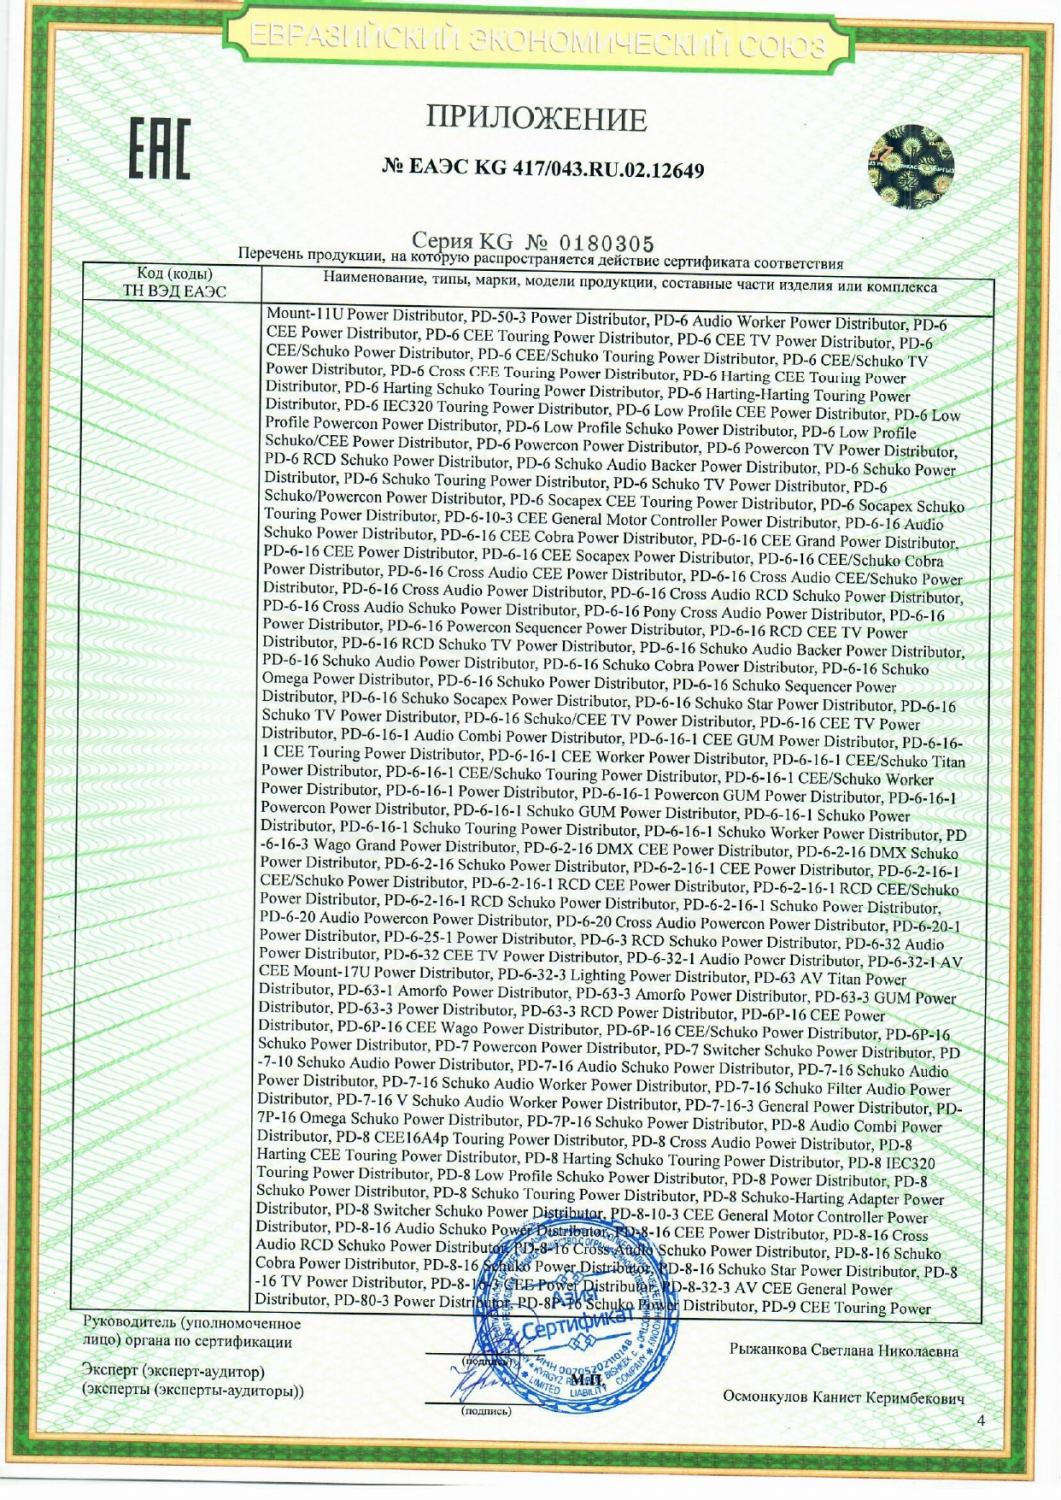 ЕВРАЗИЙСКИЙ ЭКОНОМИЧЕСКИЙ СОЮЗ
EAC
ПРИЛОЖЕНИЕ
№ ЕАЭС KG 417/043.RU.02.12649
Серия KG № 0180305
Перечень продукции, на которую распространяется действие сертификата соответствия
Код (коды)
ТН ВЭД ЕАЭС
Наименование, типы, марки, модели продукции, составные части изделия или комплекса
Mount-11U Power Distributor, PD-50-3 Power Distributor, PD-6 Audio Worker Power Distributor, PD-6
CEE Power Distributor, PD-6 CEE Touring Power Distributor, PD-6 CEE TV Power Distributor, PD-6
CEE/Schuko Power Distributor, PD-6 CEE/Schuko Touring Power Distributor, PD-6 CEE/Schuko TV
Power Distributor, PD-6 Cross CEE Touring Power Distributor, PD-6 Harting CEE Touring Power
Distributor, PD-6 Harting Schuko Touring Power Distributor, PD-6 Harting-Harting Touring Power
Distributor, PD-6 IEC320 Touring Power Distributor, PD-6 Low Profile CEE Power Distributor, PD-6 Low
Profile Powercon Power Distributor, PD-6 Low Profile Schuko Power Distributor, PD-6 Low Profile
Schuko/CEE Power Distributor, PD-6 Powercon Power Distributor, PD-6 Powercon TV Power Distributor,
PD-6 RCD Schuko Power Distributor, PD-6 Schuko Audio Backer Power Distributor, PD-6 Schuko Power
Distributor, PD-6 Schuko Touring Power Distributor, PD-6 Schuko TV Power Distributor, PD-6
Schuko/Powercon Power Distributor, PD-6 Socapex CEE Touring Power Distributor, PD-6 Socapex Schuko
Touring Power Distributor, PD-6-10-3 CEE General Motor Controller Power Distributor, PD-6-16 Audio
Schuko Power Distributor, PD-6-16 CEE Cobra Power Distributor, PD-6-16 CEE Grand Power Distributor,
PD-6-16 CEE Power Distributor, PD-6-16 CEE Socapex Power Distributor, PD-6-16 CEE/Schuko Cobra
Power Distributor, PD-6-16 Cross Audio CEE Power Distributor, PD-6-16 Cross Audio CEE/Schuko Power
Distributor, PD-6-16 Cross Audio Power Distributor, PD-6-16 Cross Audio RCD Schuko Power Distributor,
PD-6-16 Cross Audio Schuko Power Distributor, PD-6-16 Pony Cross Audio Power Distributor, PD-6-16
Power Distributor, PD-6-16 Powercon Sequencer Power Distributor, PD-6-16 RCD CEE TV Power
Distributor, PD-6-16 RCD Schuko TV Power Distributor, PD-6-16 Schuko Audio Backer Power Distributor,
PD-6-16 Schuko Audio Power Distributor, PD-6-16 Schuko Cobra Power Distributor, PD-6-16 Schuko
Omega Power Distributor, PD-6-16 Schuko Power Distributor, PD-6-16 Schuko Sequencer Power
Distributor, PD-6-16 Schuko Socapex Power Distributor, PD-6-16 Schuko Star Power Distributor, PD-6-16
Schuko TV Power Distributor, PD-6-16 Schuko/CEE TV Power Distributor, PD-6-16 CEE TV Power
Distributor, PD-6-16-1 Audio Combi Power Distributor, PD-6-16-1 CEE GUM Power Distributor, PD-6-16-
1 CEE Touring Power Distributor, PD-6-16-1 CEE Worker Power Distributor, PD-6-16-1 CEE/Schuko Titan
Power Distributor, PD-6-16-1 CEE/Schuko Touring Power Distributor, PD-6-16-1 CEE/Schuko Worker
Power Distributor, PD-6-16-1 Power Distributor, PD-6-16-1 Powercon GUM Power Distributor, PD-6-16-1
Powercon Power Distributor, PD-6-16-1 Schuko GUM Power Distributor, PD-6-16-1 Schuko Power
Distributor, PD-6-16-1 Schuko Touring Power Distributor, PD-6-16-1 Schuko Worker Power Distributor, PD
-6-16-3 Wago Grand Power Distributor, PD-6-2-16 DMX CEE Power Distributor, PD-6-2-16 DMX Schuko
Power Distributor, PD-6-2-16 Schuko Power Distributor, PD-6-2-16-1 CEE Power Distributor, PD-6-2-16-1
CEE/Schuko Power Distributor, PD-6-2-16-1 RCD CEE Power Distributor, PD-6-2-16-1 RCD CEE/Schuko
Power Distributor, PD-6-2-16-1 RCD Schuko Power Distributor, PD-6-2-16-1 Schuko Power Distributor,
PD-6-20 Audio Powercon Power Distributor, PD-6-20 Cross Audio Powercon Power Distributor, PD-6-20-1
Power Distributor, PD-6-25-1 Power Distributor, PD-6-3 RCD Schuko Power Distributor, PD-6-32 Audio
Power Distributor, PD-6-32 CEE TV Power Distributor, PD-6-32-1 Audio Power Distributor, PD-6-32-1 AV
CEE Mount-17U Power Distributor, PD-6-32-3 Lighting Power Distributor, PD-63 AV Titan Power
Distributor, PD-63-1 Amorfo Power Distributor, PD-63-3 Amorfo Power Distributor, PD-63-3 GUM Power
Distributor, PD-63-3 Power Distributor, PD-63-3 RCD Power Distributor, PD-6P-16 CEE Power
Distributor, PD-6P-16 CEE Wago Power Distributor, PD-6P-16 CEE/Schuko Power Distributor, PD-6P-16
Schuko Power Distributor, PD-7 Powercon Power Distributor, PD-7 Switcher Schuko Power Distributor, PD
-7-10 Schuko Audio Power Distributor, PD-7-16 Audio Schuko Power Distributor, PD-7-16 Schuko Audio
Power Distributor, PD-7-16 Schuko Audio Worker Power Distributor, PD-7-16 Schuko Filter Audio Power
Distributor, PD-7-16 V Schuko Audio Worker Power Distributor, PD-7-16-3 General Power Distributor, PD-
7P-16 Omega Schuko Power Distributor, PD-7P-16 Schuko Power Distributor, PD-8 Audio Combi Power
Distributor, PD-8 CEE16A4p Touring Power Distributor, PD-8 Cross Audio Power Distributor, PD-8
Harting CEE Touring Power Distributor, PD-8 Harting Schuko Touring Power Distributor, PD-8 IEC320
Touring Power Distributor, PD-8 Low Profile Schuko Power Distributor, PD-8 Power Distributor, PD-8
Schuko Power Distributor, PD-8 Schuko Touring Power Distributor, PD-8 Schuko-Harting Adapter Power
Distributor, PD-8 Switcher Schuko Power Distributor, PD-8-10-3 CEE General Motor Controller Power
Distributor, PD-8-16 Audio Schuko Power Distributor, PD-8-16 CEE Power Distributor, PD-8-16 Cross
Audio RCD Schuko Power Distributor, PD-8-16 Cross Audio Schuko Power Distributor, PD-8-16 Schuko
Cobra Power Distributor, PD-8-16 Schuko Power Distributor, PD-8-16 Schuko Star Power Distributor, PD-8
-16 TV Power Distributor, PD-8-16-3 CEE Power Distributor, PD-8-32-3 AV CEE General Power
Distributor, PD-80-3 Power Distributor, PD-8P-16 Schuko Power Distributor, PD-9 CEE Touring Power
Руководитель (уполномоченное
лицо) органа по сертификации
(подпись)
Рыжанкова Светлана Николаевна
Эксперт (эксперт-аудитор)
(эксперты (эксперты-аудиторы))
(подпись)
М.П.
Осмонкулов Канист Керимбекович
Азия
Сертификат
ИНН 00705202110148
KYRGYZ REPUBLIC BISHKEK C.
LIMITED LIABILITY COMPANY
4